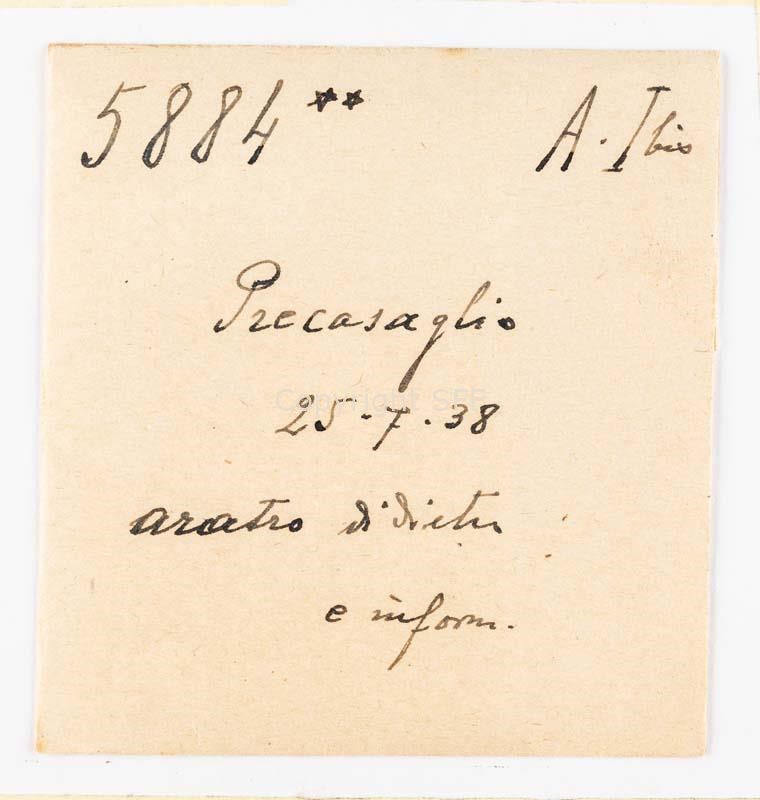 5884** A. Ibis
Precasaglio
Copyright SFF
25-7.38
aratro di dietro
e inform.